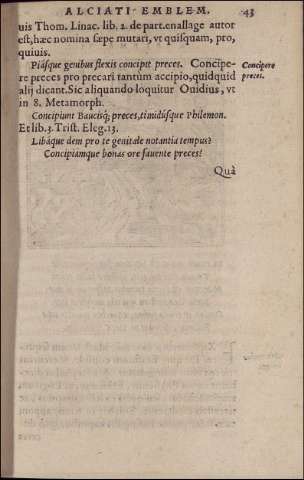 ALCIATI EMBLEM. 43
uis Thom. Linac. lib. 2. de part. enallage autor
est, hæc nomina sæpe mutari, vt quisquam, pro,
quiuis.
Piásque genibus flexis concipit preces. Concipe- Concipere
re preces pro precari tantùm accipio, quidquid preces.
alij dicant. Sic aliquando loquitur Ouidius, vt
in 8. Metamorph.
Concipiunt Baucisq; preces, timidúsque Philemon.
Et lib. 3. Trist. Eleg. 13.
Libáque dem pro te genitale notantia tempus?
Concipiamque bonas ore fauente preces?
Quà